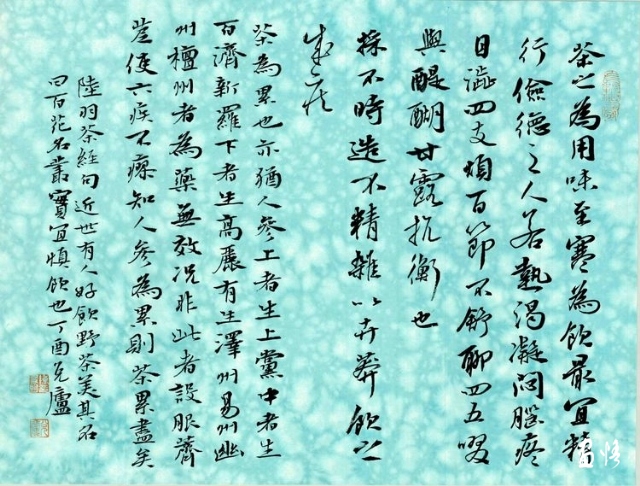 茶之為用味至寒為飲最宜精
行儉德之人若熱渴凝悶腦疼
目澁四支煩百節不舒聊四五啜
與醍醐甘露抗衡也
採不時造不精雜以卉莽飲之
成疾
茶為累也亦猶人參上者生上黨中者生
百濟新羅下者生高麗有生澤州易州幽
州檀州者為藥無效況非此者設服薺
苨使六疾不瘳知人參為累則茶累盡矣
陸羽茶經句近世有人好飲野茶美其名
曰百花名叢實宜慎飲也丁酉克廬